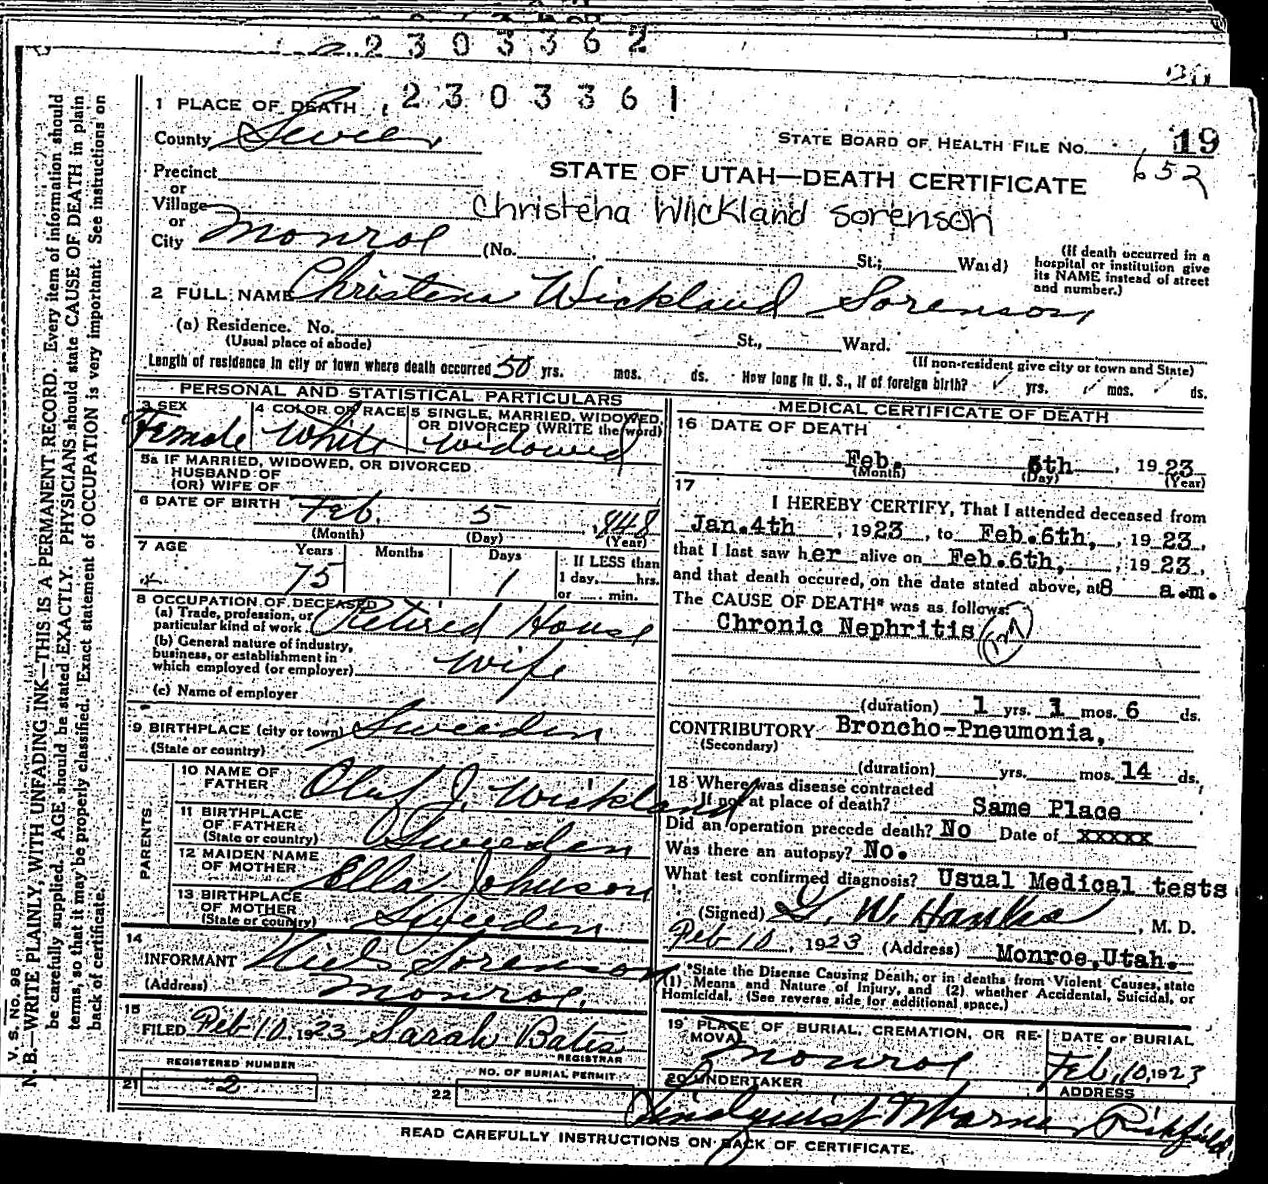 2303362
2303361
19
1 PLACE OF DEATH
County Sevier
STATE BOARD OF HEALTH FILE No.
652
STATE OF UTAH—DEATH CERTIFICATE
Precinct
or
Village
or
City Monroe (No. St.; Ward)
Christena Wickland Sorenson
(If death occurred in a hospital or institution give its NAME instead of street and number.)
2 FULL NAME Christena Wickland Sorenson
(a) Residence. No. St., Ward.
(Usual place of abode) (If non-resident give city or town and State)
Length of residence in city or town where death occurred 50 yrs. mos. ds. How long in U. S., if of foreign birth? yrs. mos. ds.
PERSONAL AND STATISTICAL PARTICULARS
3 SEX 4 COLOR OR RACE 5 SINGLE, MARRIED, WIDOWED, OR DIVORCED (WRITE the word)
Female White Widowed
5a IF MARRIED, WIDOWED, OR DIVORCED
HUSBAND OF
(OR) WIFE OF
6 DATE OF BIRTH Feb. 5 , 1848
(Month) (Day) (Year)
7 AGE Years Months Days If LESS than
75 1 1 day, hrs.
or min.
8 OCCUPATION OF DECEASED
(a) Trade, profession, or
particular kind of work Retired House
(b) General nature of industry,
business, or establishment in
which employed (or employer) wife
(c) Name of employer
9 BIRTHPLACE (city or town) Sweeden
(State or country)
PARENTS
10 NAME OF FATHER Olaf J. Wickland
11 BIRTHPLACE OF FATHER Sweeden
(State or country)
12 MAIDEN NAME OF MOTHER Ella Johnson
13 BIRTHPLACE OF MOTHER Sweeden
(State or country)
14
INFORMANT Niels Sorenson
(Address) Monroe.
15
FILED Feb 10, 1923 Sarah Bates
REGISTRAR
REGISTERED NUMBER NO. OF BURIAL PERMIT
21 2 22
MEDICAL CERTIFICATE OF DEATH
16 DATE OF DEATH
Feb. 6th , 1923
(Month) (Day) (Year)
17
I HEREBY CERTIFY, That I attended deceased from
Jan.4th , 1923, to Feb.6th, , 1923,
that I last saw her alive on Feb.6th, , 1923,
and that death occured, on the date stated above, at 8 a.m.
The CAUSE OF DEATH* was as follows:
Chronic Nephritis
(duration) 1 yrs. 1 mos. 6 ds.
CONTRIBUTORY Broncho-Pneumonia,
(Secondary)
(duration) yrs. mos. 14 ds.
18 Where was disease contracted
If not at place of death? Same Place
Did an operation precede death? No Date of xxxxx
Was there an autopsy? No.
What test confirmed diagnosis? Usual Medical tests
(Signed) G. W. Hanks , M. D.
Feb 10, 1923 (Address) Monroe,Utah.
*State the Disease Causing Death, or in deaths from Violent Causes, state
(1) Means and Nature of Injury, and (2) whether Accidental, Suicidal, or
Homicidal. (See reverse side for additional space.)
19 PLACE OF BURIAL, CREMATION, OR REMOVAL DATE OF BURIAL
Monroe Feb. 10, 1923
20 UNDERTAKER ADDRESS
Lindquist Richfield
READ CAREFULLY INSTRUCTIONS ON BACK OF CERTIFICATE.
V. S. No. 98
N. B.—WRITE PLAINLY, WITH UNFADING INK—THIS IS A PERMANENT RECORD. Every item of information should
be carefully supplied. AGE should be stated EXACTLY. PHYSICIANS should state CAUSE OF DEATH in plain
terms, so that it may be properly classified. Exact statement of OCCUPATION is very important. See instructions on
back of certificate.